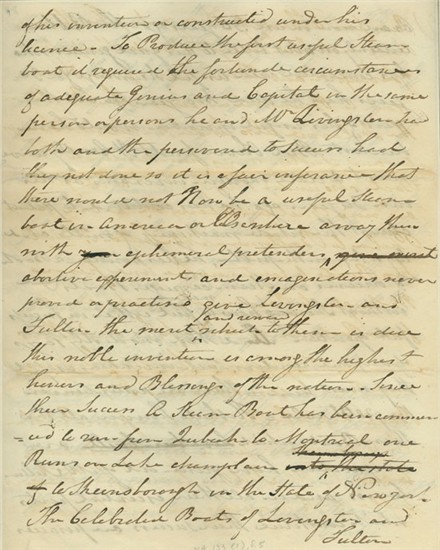 of his invention or constructed under his
licence - To Produce the first useful Steam
boat it required the fortunate circumstances
of adequate Genius and Capital in the same
person or persons he and Mr Livingston had
both and the persevered to success had
they not done so it is a fair inference that
there would not Now be a useful Steam
boat in America or Elsewhere away then
with ephemeral pretenders,
abortive experiments and imaginations never
proved or practised give Livingston and
Fulton the merit and renown which to them is due
this noble invention is among the highest
honors and Blessings of the nation. Since
their Success A Steam Boat has been commen
=ced to run from Quebeck to Montreal one
Runs on Lake champlain
to Skeensborough in the State of New york
The Celebrated Boats of Livingston and
Fulton